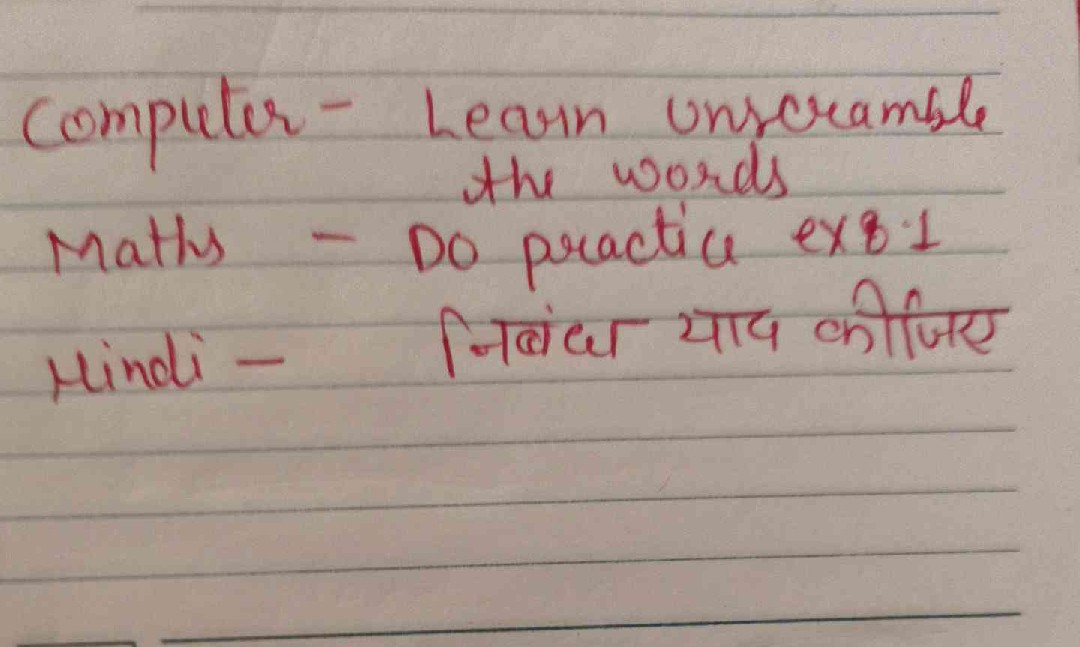 Computer - Learn unscramble
the words
Maths - Do practice ex 8.1
Hindi - निबंध याद कीजिए